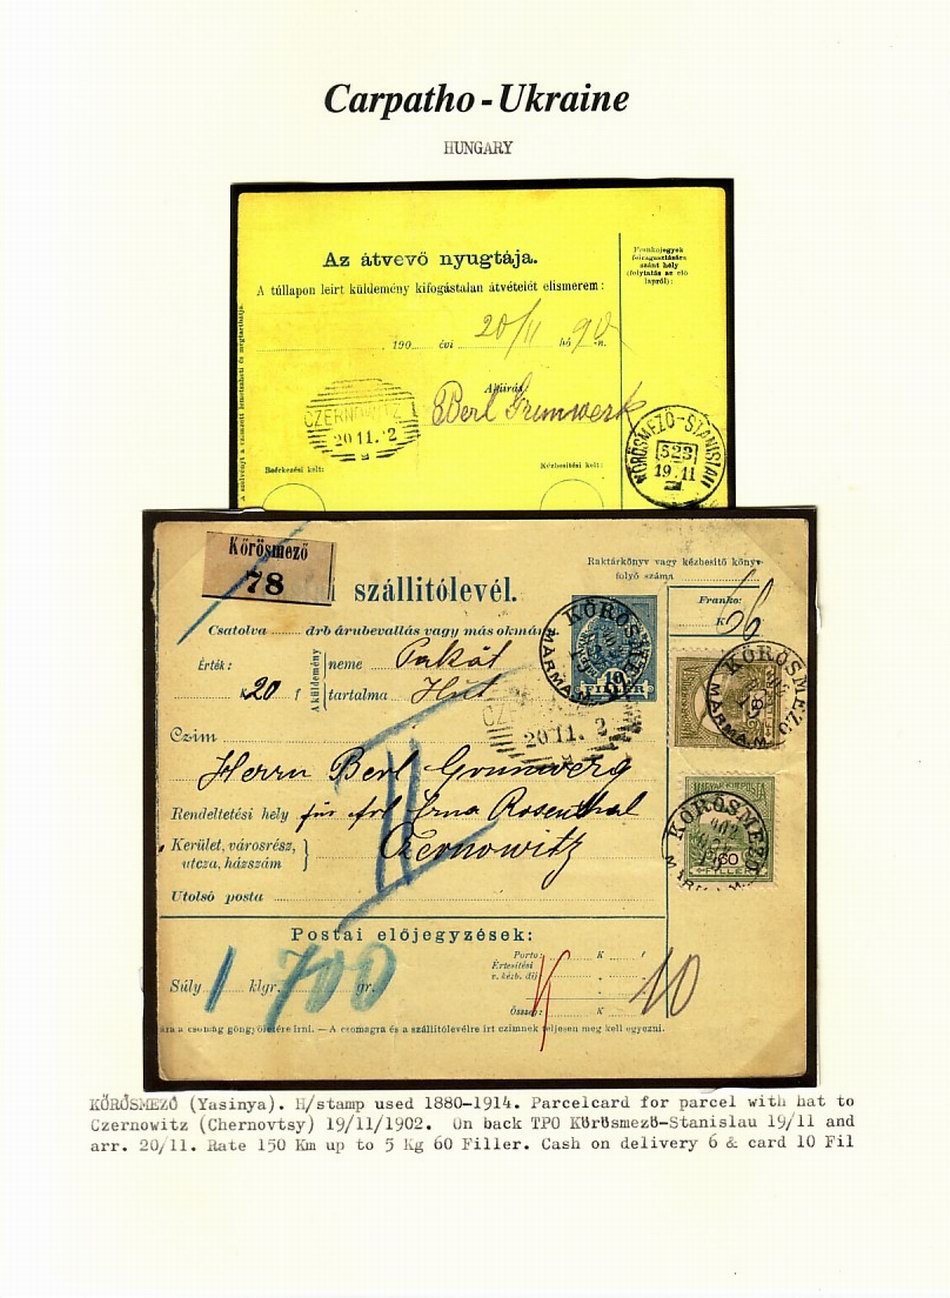 Carpatho - Ukraine
HUNGARY
Az átvevő nyugtája.
A túllapon leirt küldemény kifogástalan átvételét elismerem:
Frankojegyek
felragasztására
szánt hely
(folytatás az elő
lapról):
190 évi 20/11 hó 90 -n.
Aláírás:
CZERNOWITZ 1
20 11. 2
KŐRÖSMEZŐ-STANISLAU
523
19 11
Beérkezési kelt:
Kézbesitési kelt:
Kőrösmező
78
i szállitólevél.
Raktárkönyv vagy kézbesitő könyv-
folyó száma
Franko:
K 66
Csatolva drb árubevallás vagy más okmány
Érték:
A küldemény
neme Pakát
K 20 f
tartalma Hut
KŐRÖSMEZŐ
MÁRMA.M.
10
FILLÉR
KŐRÖSMEZŐ
MÁRMA.M.
20 11. 2
Czim
Herrn Berl Grunwerg
Rendeltetési hely für frl Erna Rosenthal
Kerület, városrész,
utcza, házszám
Czernowitz
MAGYAR KIR. POSTA
KŐRÖSMEZŐ
902
60
FILLÉR
Utolsó posta
II
Postai előjegyzések:
Súly 1 klgr. 700 gr.
Porto: K f
Értesitési
v. kézb. díj:
Összeg: K
10
ára a csomag göngyöletére irni. — A csomagra és a szállitólevélre irt czimnek teljesen meg kell egyezni.
KŐRÖSMEZŐ (Yasinya). H/stamp used 1880-1914. Parcelcard for parcel with hat to
Czernowitz (Chernovtsy) 19/11/1902. On back TPO Körösmező-Stanislau 19/11 and
arr. 20/11. Rate 150 Km up to 5 Kg 60 Filler. Cash on delivery 6 & card 10 Fil